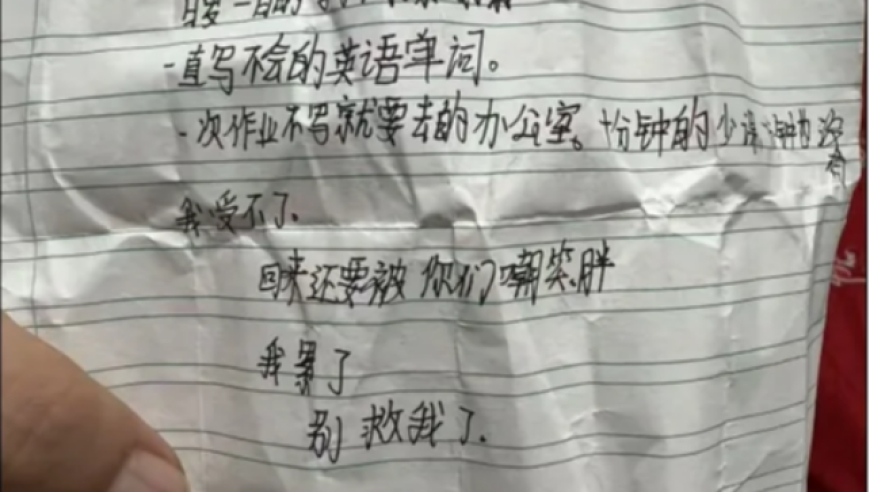 一直写不会的英语单词。
一次作业不写就要去的办公室。十分钟的少
我受不了.
回来还要被你们嘲笑胖
我累了
别救我了.